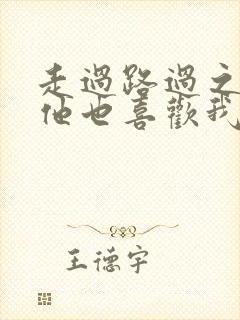 走過路過之
他也喜歡我
王德宇